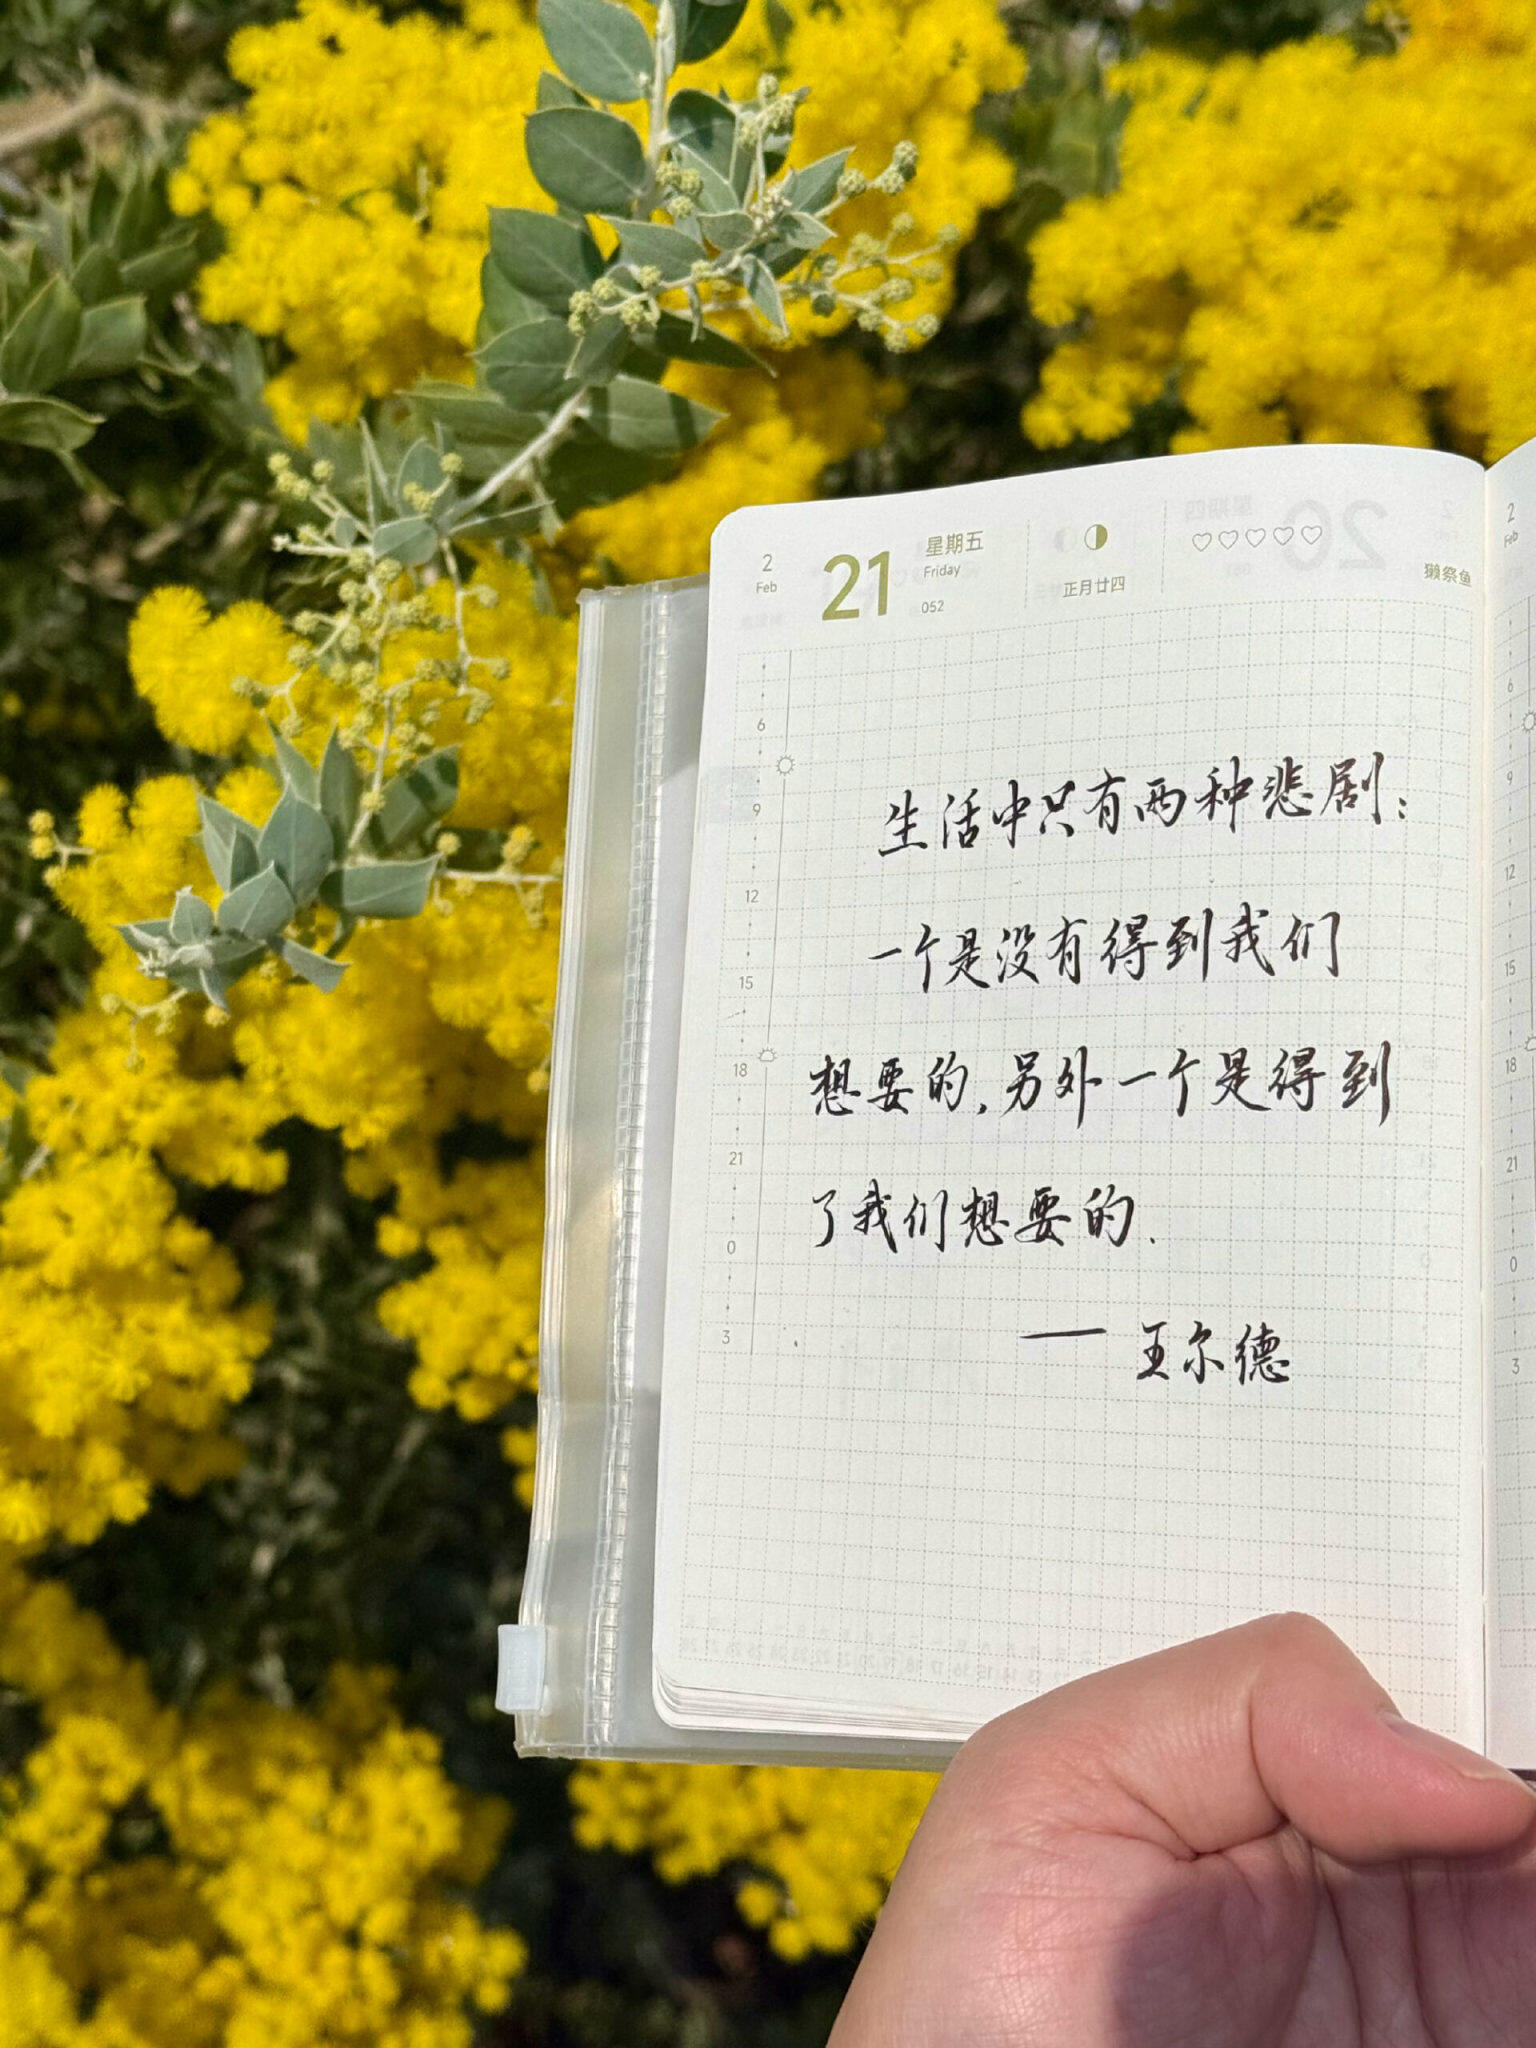 2
Feb
21
星期五
Friday
052
正月廿四
獭祭鱼
6
9
12
15
18
21
0
3
生活中只有两种悲剧：
一个是没有得到我们
想要的，另外一个是得到
了我们想要的.
—— 王尔德
2
Feb
6
9
12
15
18
21
0
3